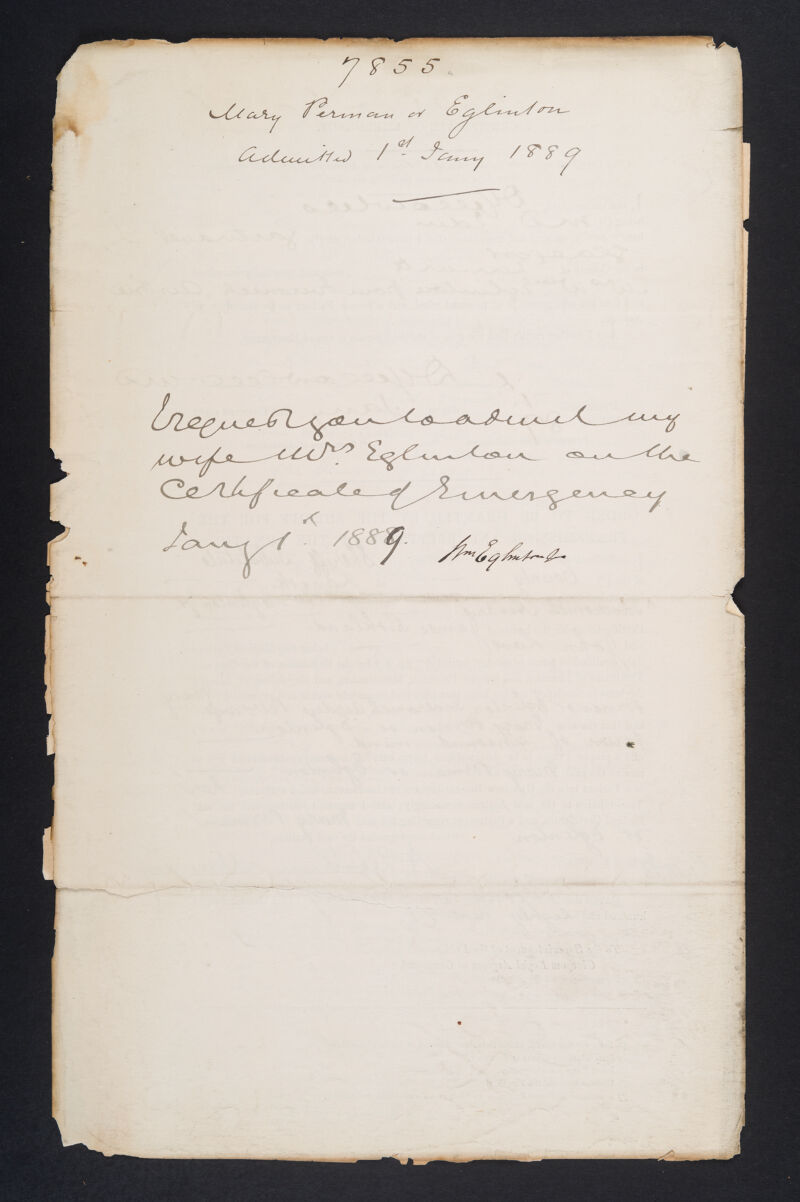 7855.
Mary Perman or Eglinton
Admitted 1st Jany 1889
I request you to admit my
wife Mrs. Eglinton on the
Certificate of Emergency
Jany 1st. 1889.
Wm Eglinton